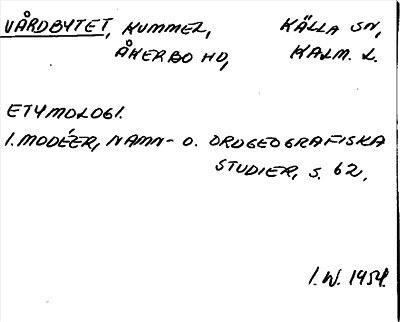 VÅRDBYTET, KUMMEL, KÄLLA SN,
ÅKERBO HD, KALM. L.
ETYMOLOGI.
I. MODÉER, NAMN- O. ORDGEOGRAFISKA
STUDIER, S. 62.
I. W. 1954.